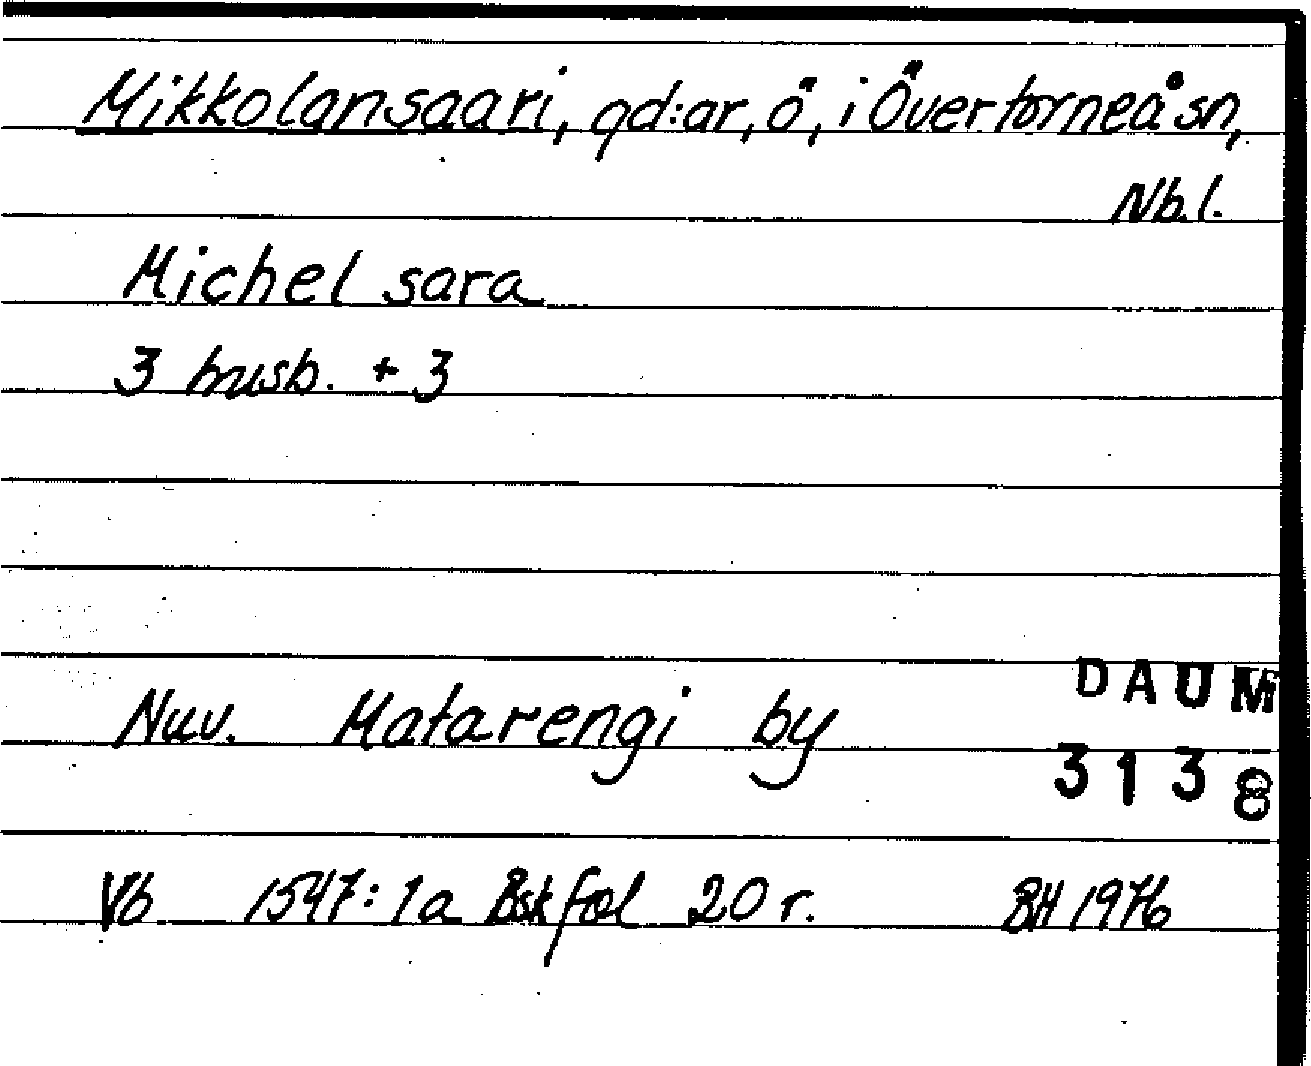 Mikkolansaari, gd:ar, ö, i Övertorneå sn,
Nb.l.
Michel sara
3 husb. + 3
DAUM
Nuv. Matarengi by
3138
Vb 1547:1a Bskfol 20 r. BH 1976